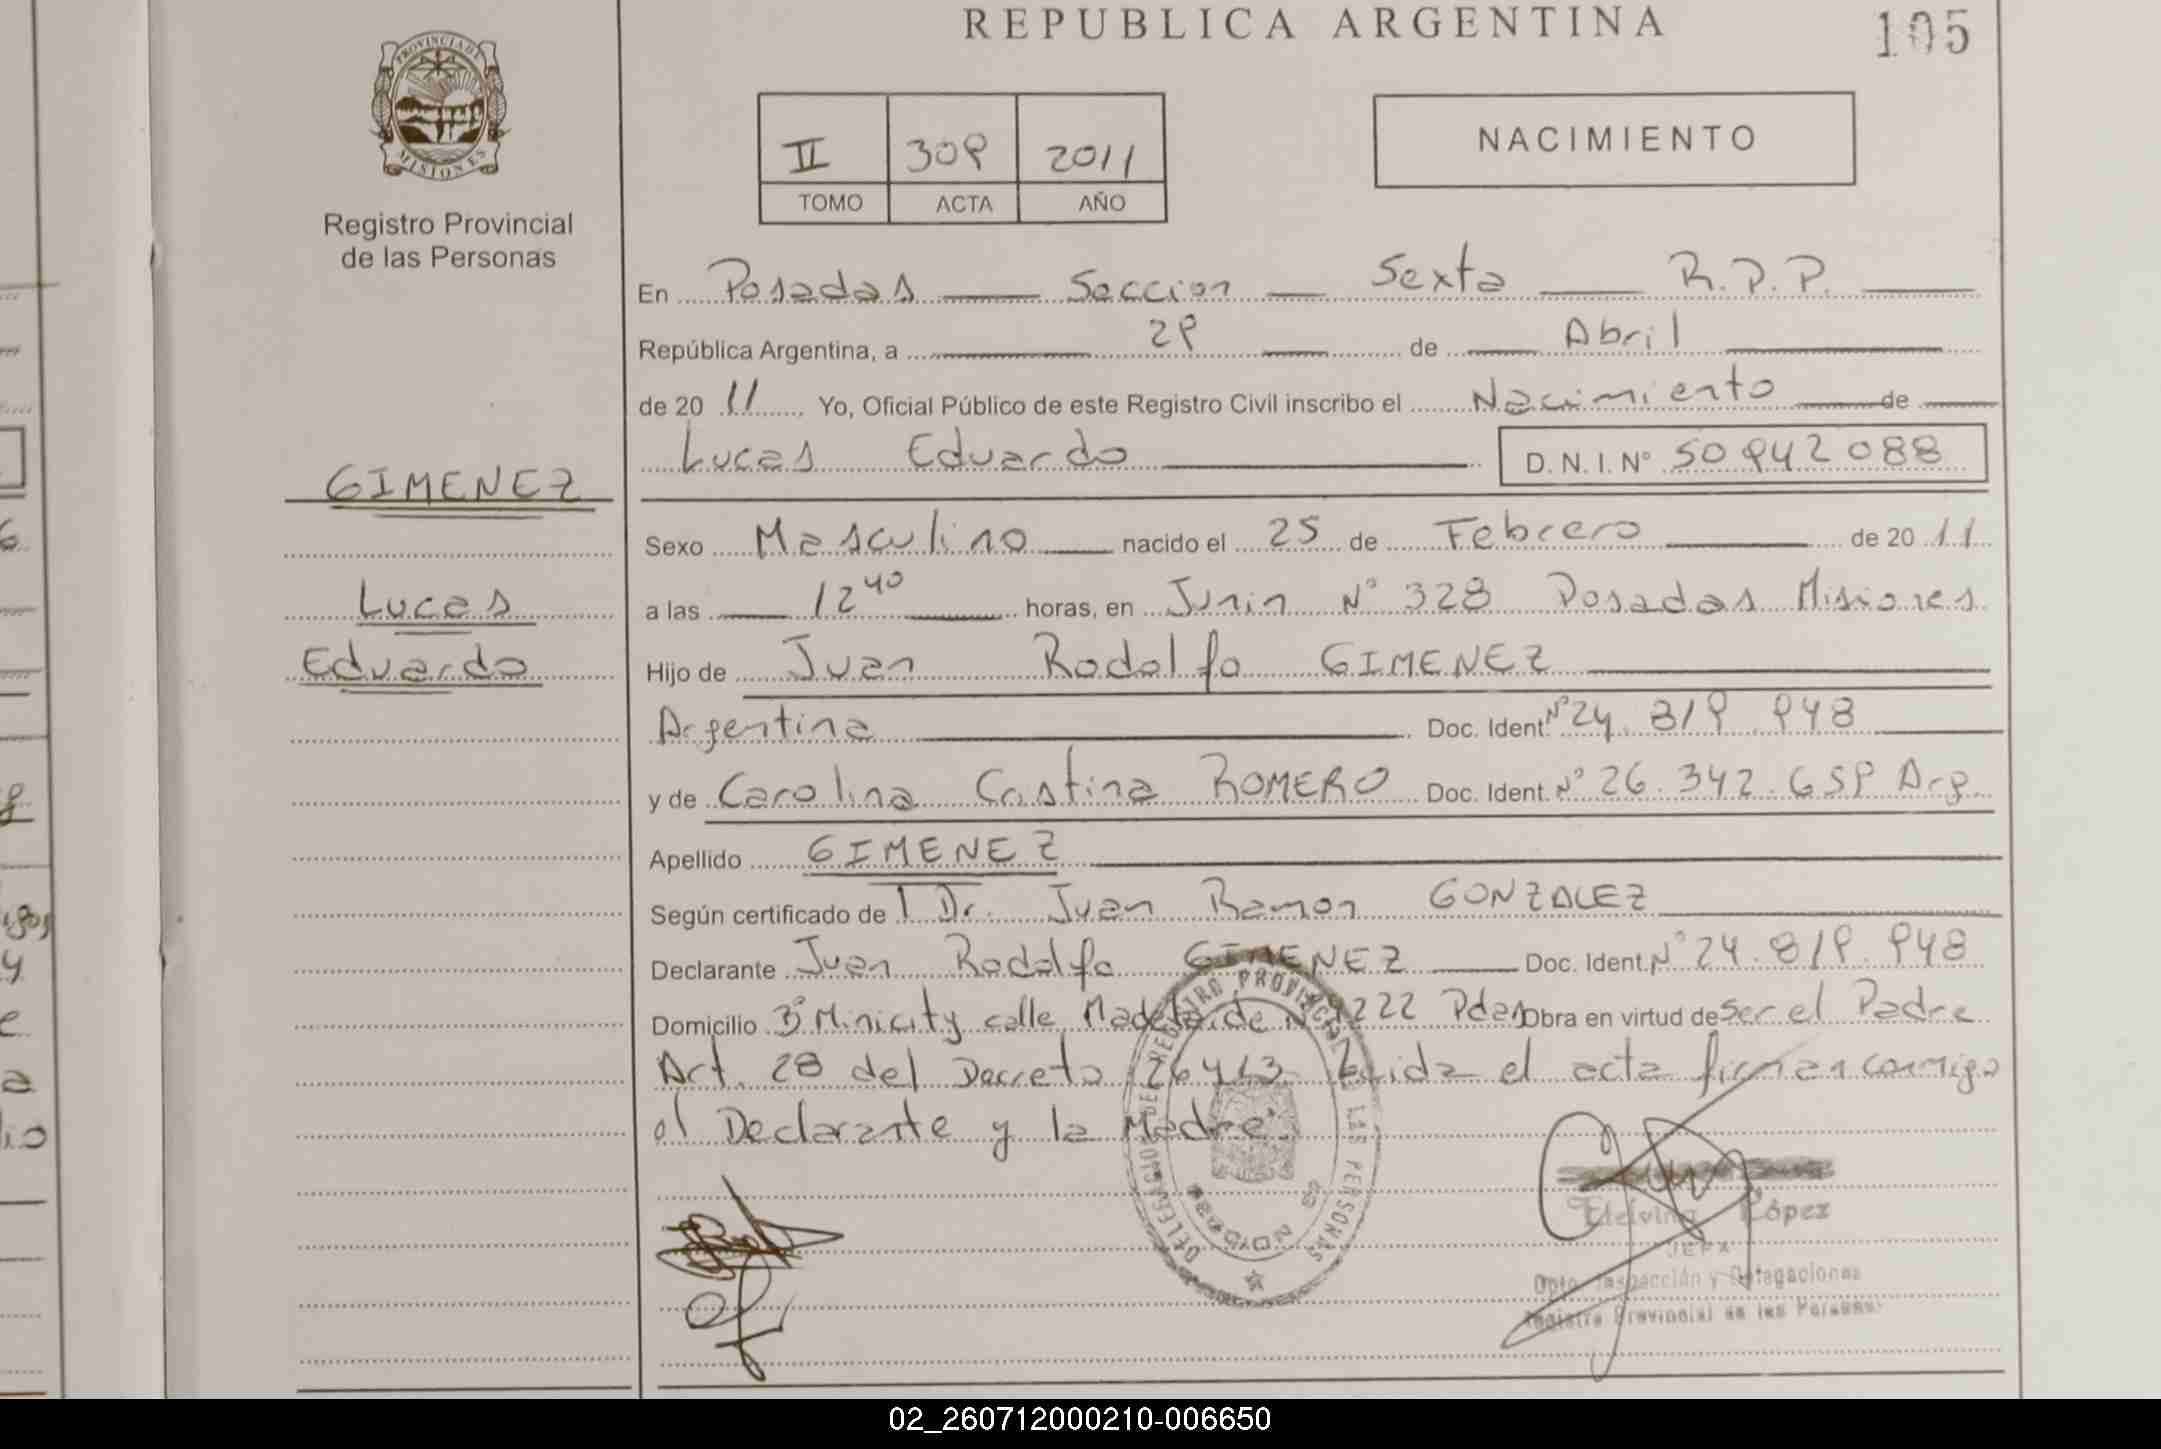 REPUBLICA ARGENTINA
105
PROVINCIA DE MISIONES
Registro Provincial
de las Personas
II 309 2011
TOMO ACTA AÑO
NACIMIENTO
En Posadas Seccion Sexta R.P.P.
República Argentina, a 29 de Abril
de 2011 Yo, Oficial Público de este Registro Civil inscribo el Nacimiento de
Lucas Eduardo D.N.I. N° 50942088
GIMENEZ
Lucas
Eduardo
Sexo Masculino nacido el 25 de Febrero de 2011
a las 12 40 horas, en Junin N° 328 Posadas Misiones
Hijo de Juan Rodolfo GIMENEZ
Argentina Doc. Ident. N° 24.819.948
y de Carolina Cristina ROMERO Doc. Ident. N° 26.342.659 Arg.
Apellido GIMENEZ
Según certificado de Dr. Juan Ramon GONZALEZ
Declarante Juan Rodolfo GIMENEZ Doc. Ident. N° 24.819.948
Domicilio B° Minicity calle N° 4222 Pdas Obra en virtud de ser el Padre
Art. 28 del Decreto 26413 Leida el acta firman conmigo
el Declarante y la Madre.
DELEGACION DE REGISTRO PROVINCIAL DE LAS PERSONAS
López
JEFA
Dpto. Inspección y Delegaciones
Registro Provincial de las Personas
02_260712000210-006650